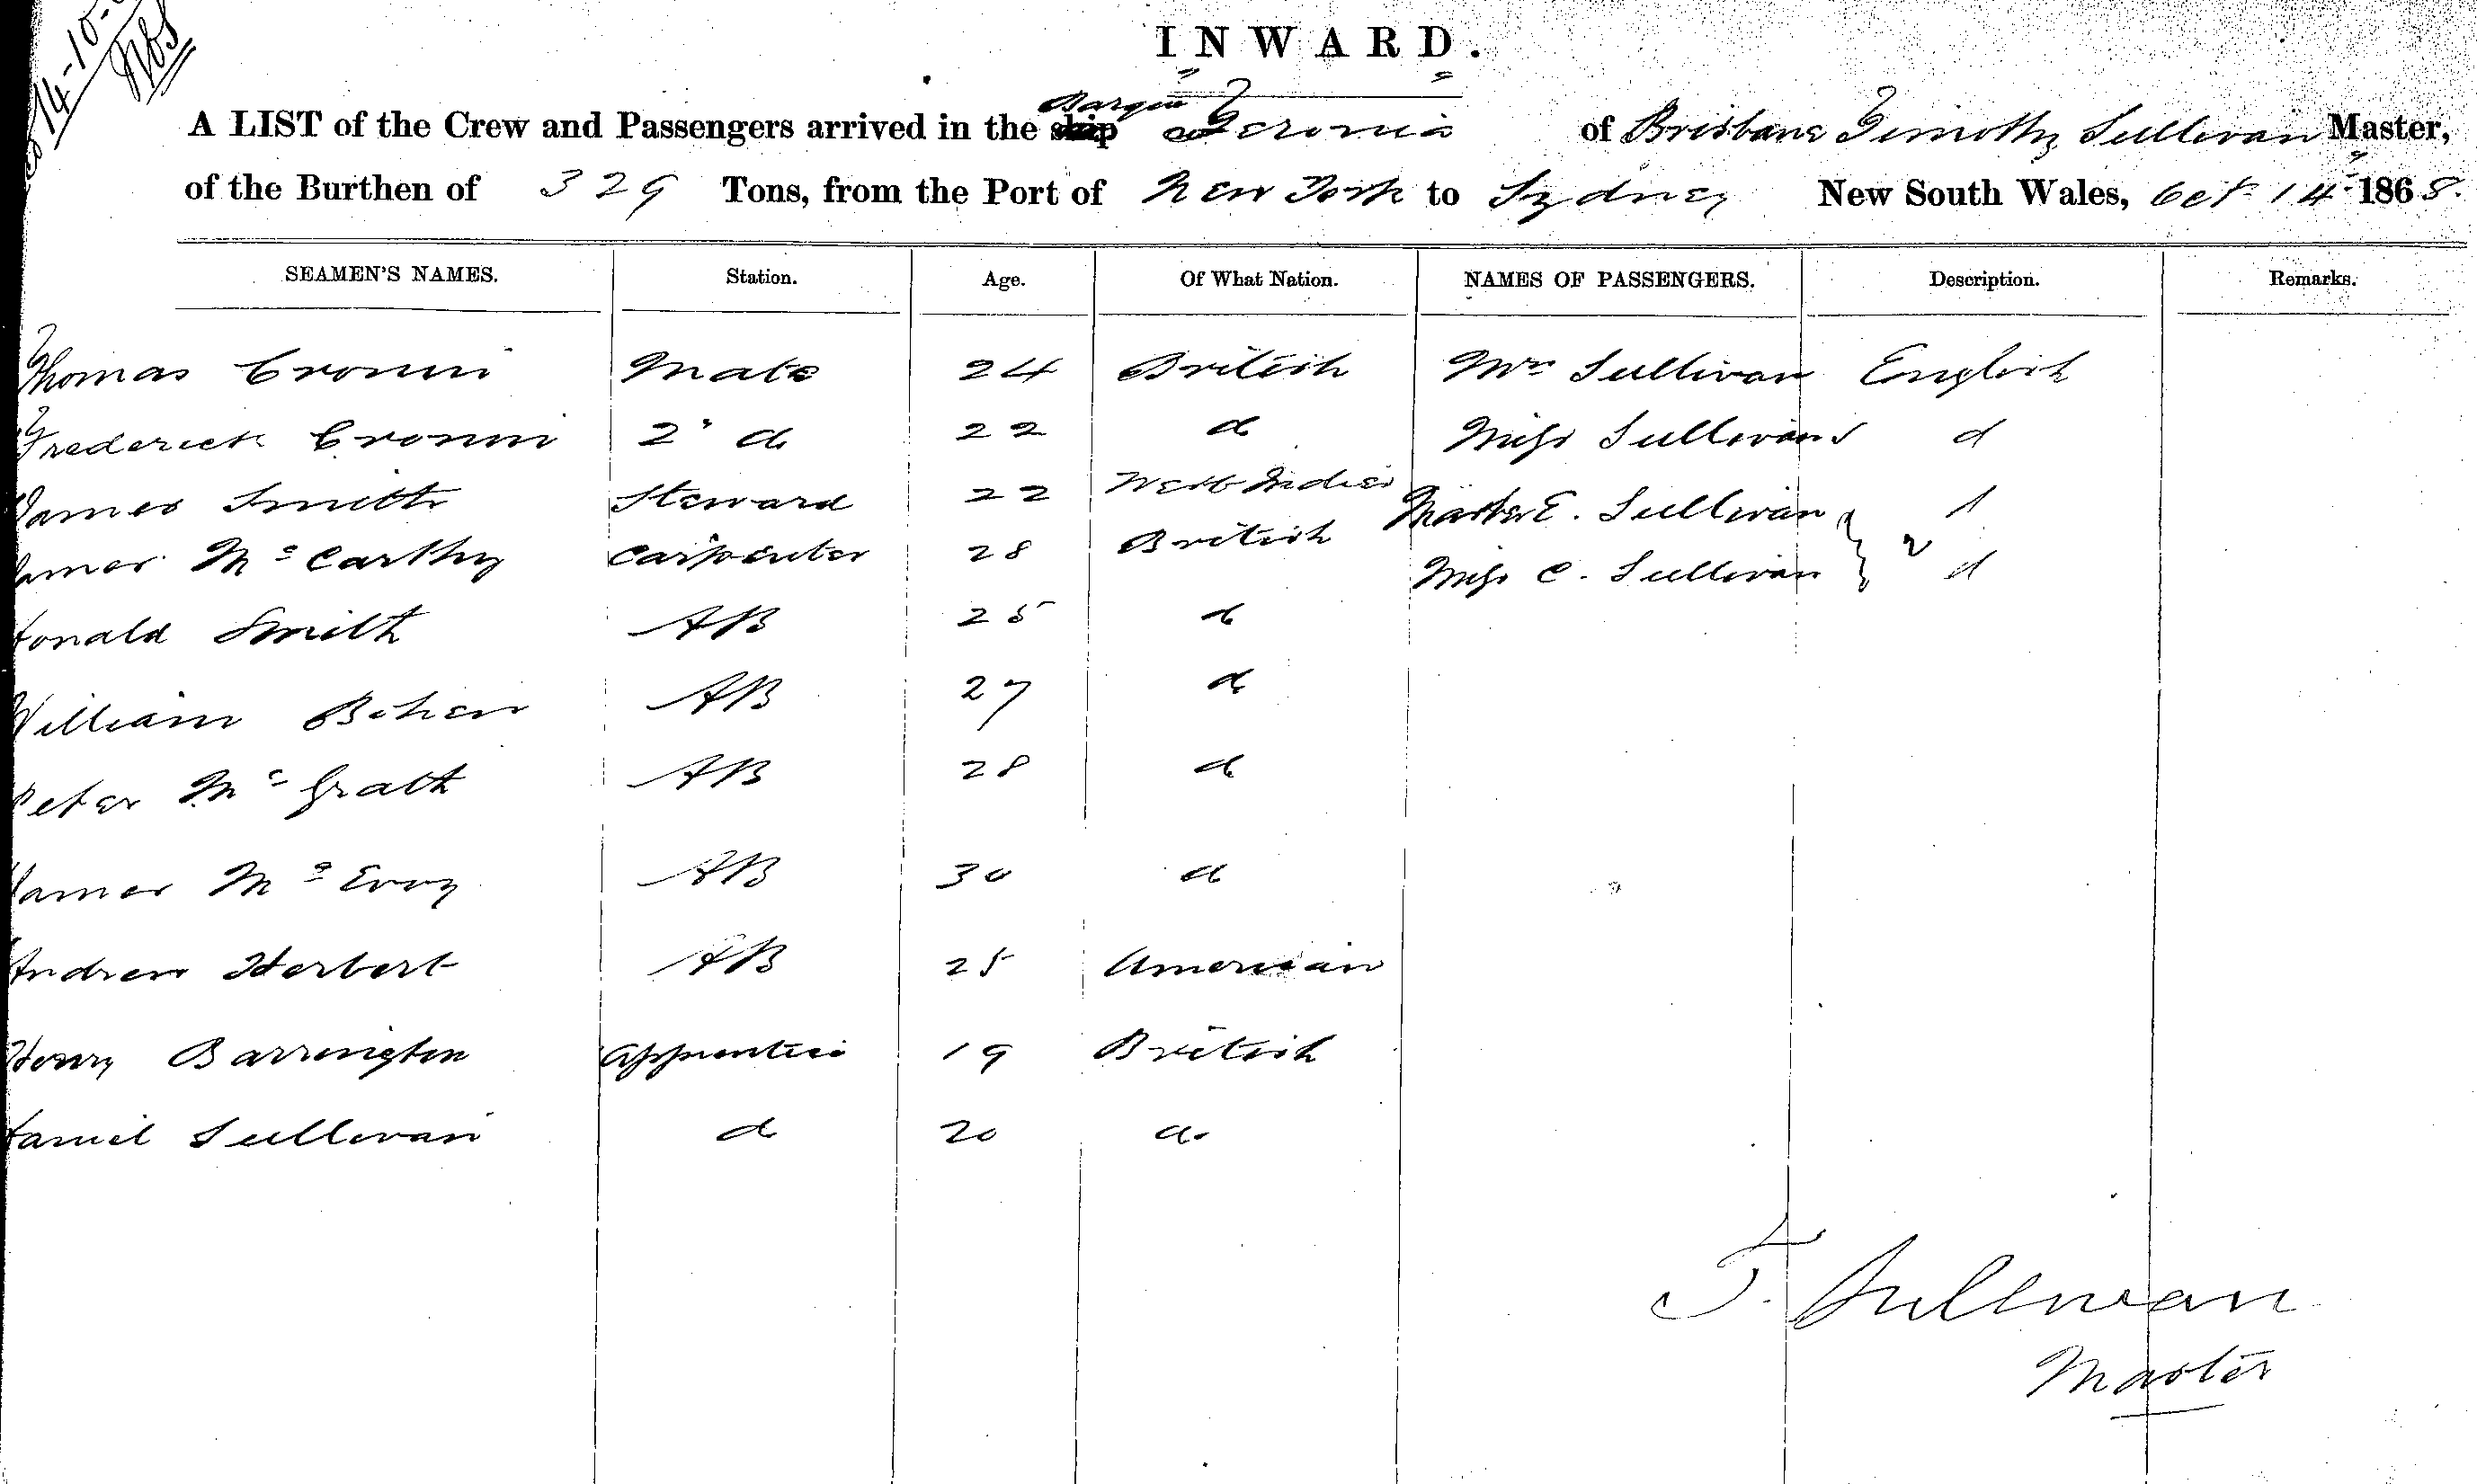 14-10-
INWARD.
Barque
A LIST of the Crew and Passengers arrived in the ship Feronia of Brisbane Timothy Sullivan Master,
of the Burthen of 329 Tons, from the Port of New York to Sydney New South Wales, Oct 14 1868.
SEAMEN'S NAMES. Station. Age. Of What Nation. NAMES OF PASSENGERS. Description. Remarks.
Thomas Cronin Mate 24 British Mrs Sullivan English
Frederick Cronin 2d d 22 d Miss Sullivan d
James Smith Steward 22 West Indies Master E. Sullivan d
James McCarthy Carpenter 28 British Miss C. Sullivan } 2 d
Donald Smith AB 25 d
William Behen AB 27 d
Peter McGrath AB 28 d
James McEvoy AB 30 d
Andrew Herbert AB 25 American
Henry Barrington Apprentice 19 British
Daniel Sullivan d 20 d
T. Sullivan
Master